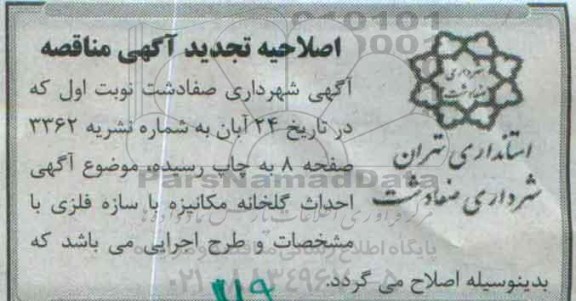 اصلاحیه تجدید آگهی مناقصه
شهرداری
صفادشت
استانداری تهران
شهرداری صفادشت
آگهی شهرداری صفادشت نوبت اول که
در تاریخ ۲۴ آبان به شماره نشریه ۳۳۶۲
صفحه ۸ به چاپ رسیده، موضوع آگهی
احداث گلخانه مکانیزه با سازه فلزی با
مشخصات و طرح اجرایی می باشد که
بدینوسیله اصلاح می گردد.
ParsNamadData
پایگاه اطلاع رسانی مناقصه و مزایده